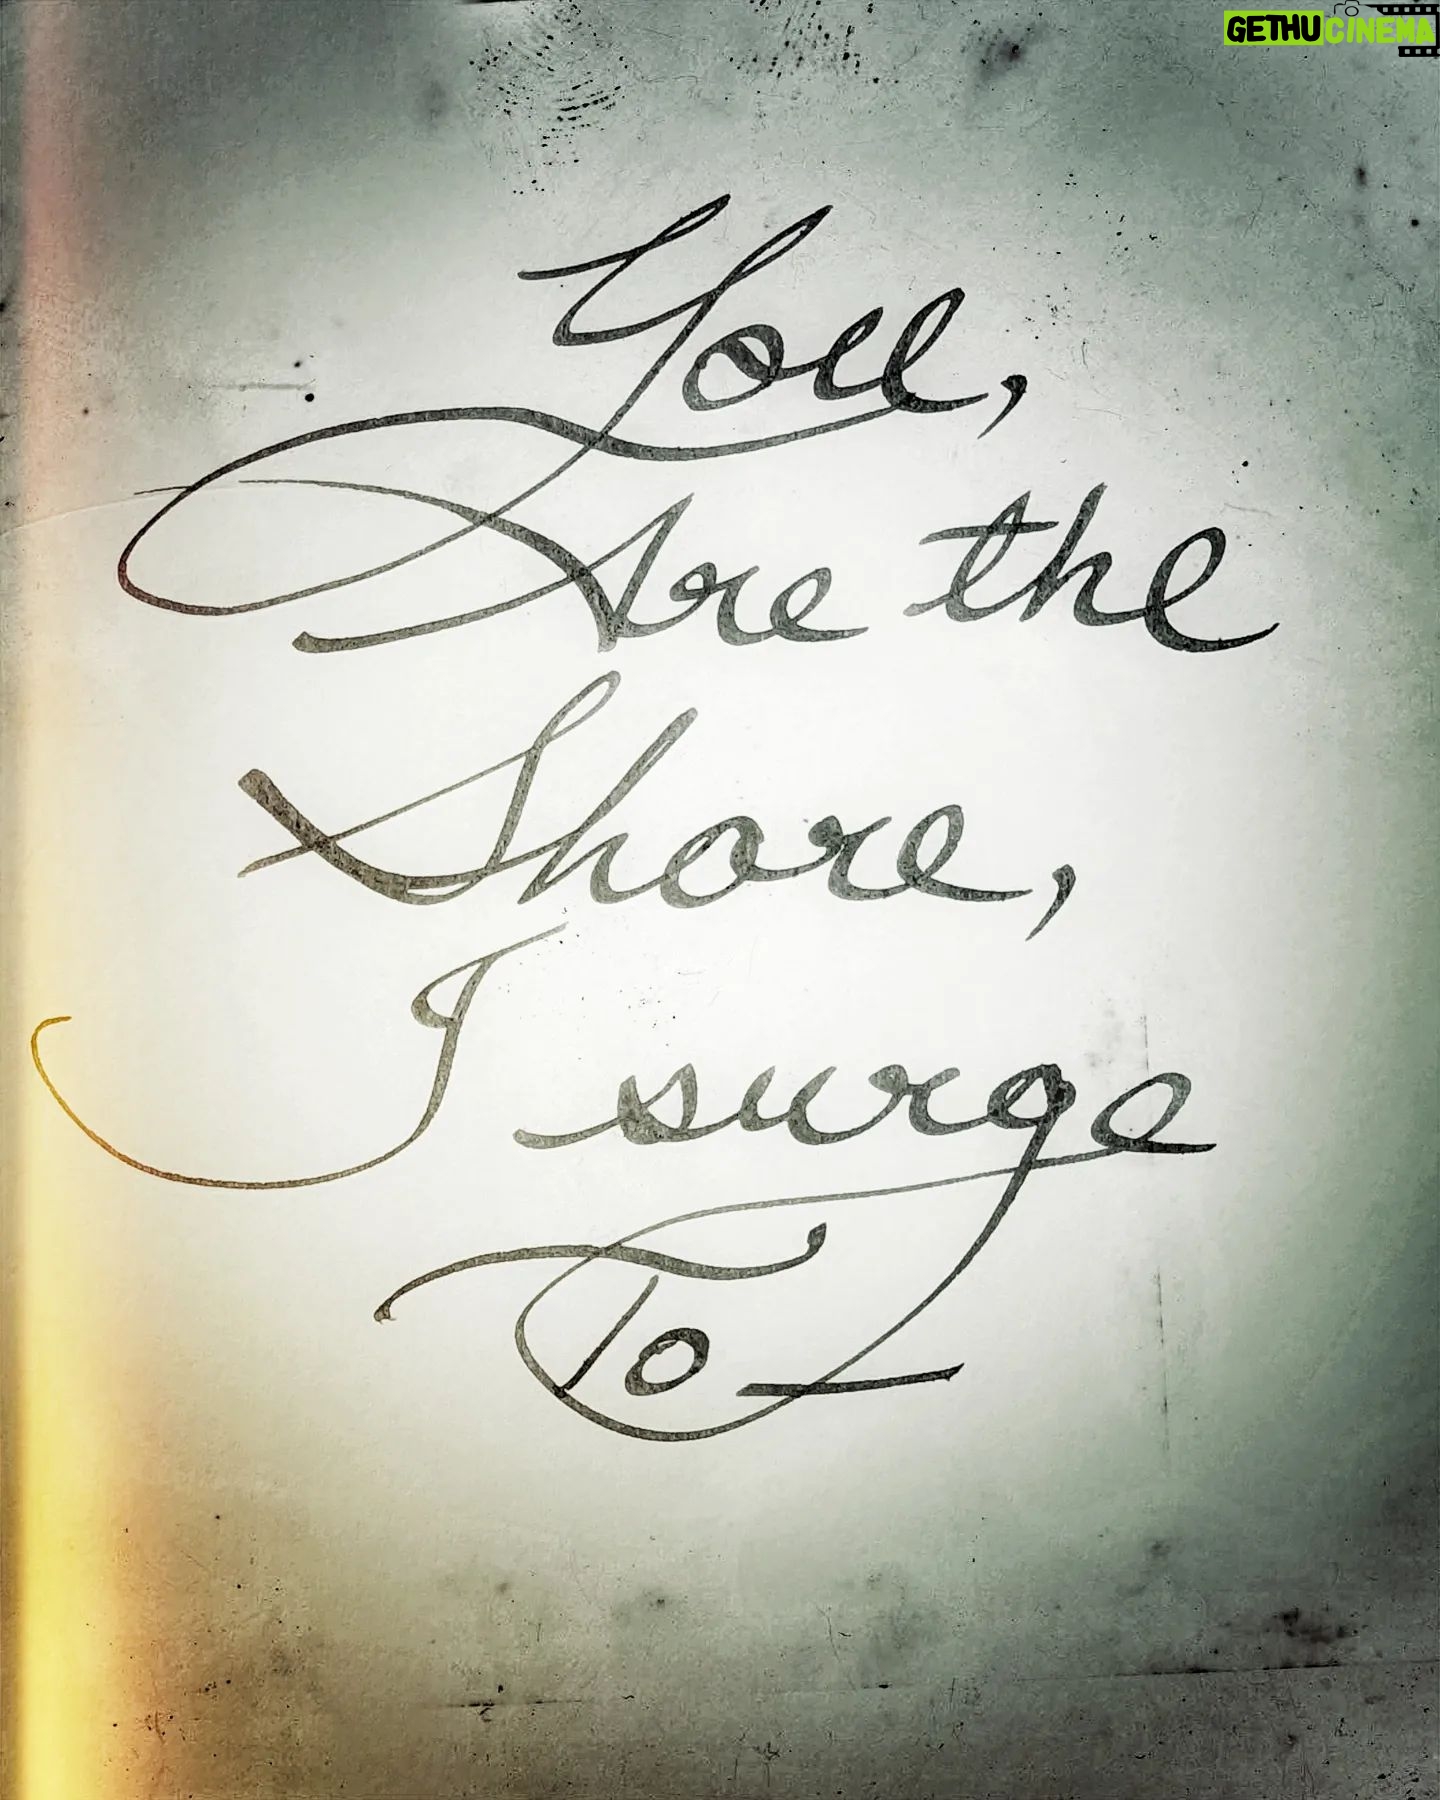 GETHU CINEMA
You,
Are the
Shore,
I surge
To —